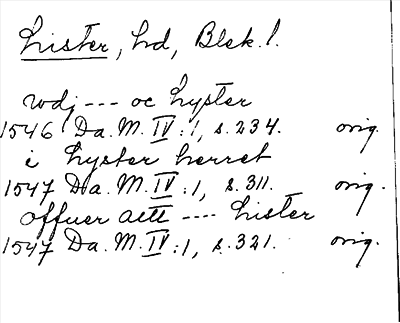 Lister, hd, Blek.l.
wdj --- oc Lyster
1546 Da.M.IV:1, s.234. orig.
i Lyster herret
1547 Da.M.IV:1, s.311. orig.
offuer altt ---- Lister
1547 Da.M.IV:1, s.321. orig.